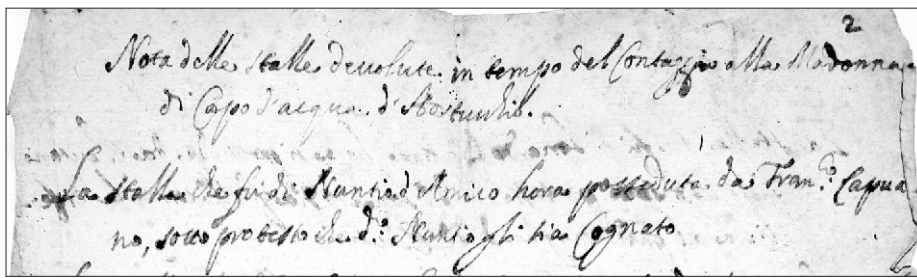 2
Nota delle stalle devolute in tempo del Contaggio alla Madonna
di Capo d'acqua d'
La stalla che fu di Nuntio d'Amico hora posseduta da Fran.co Capua
no, sotto protesto che d.o Nuntio gli sia Cognato